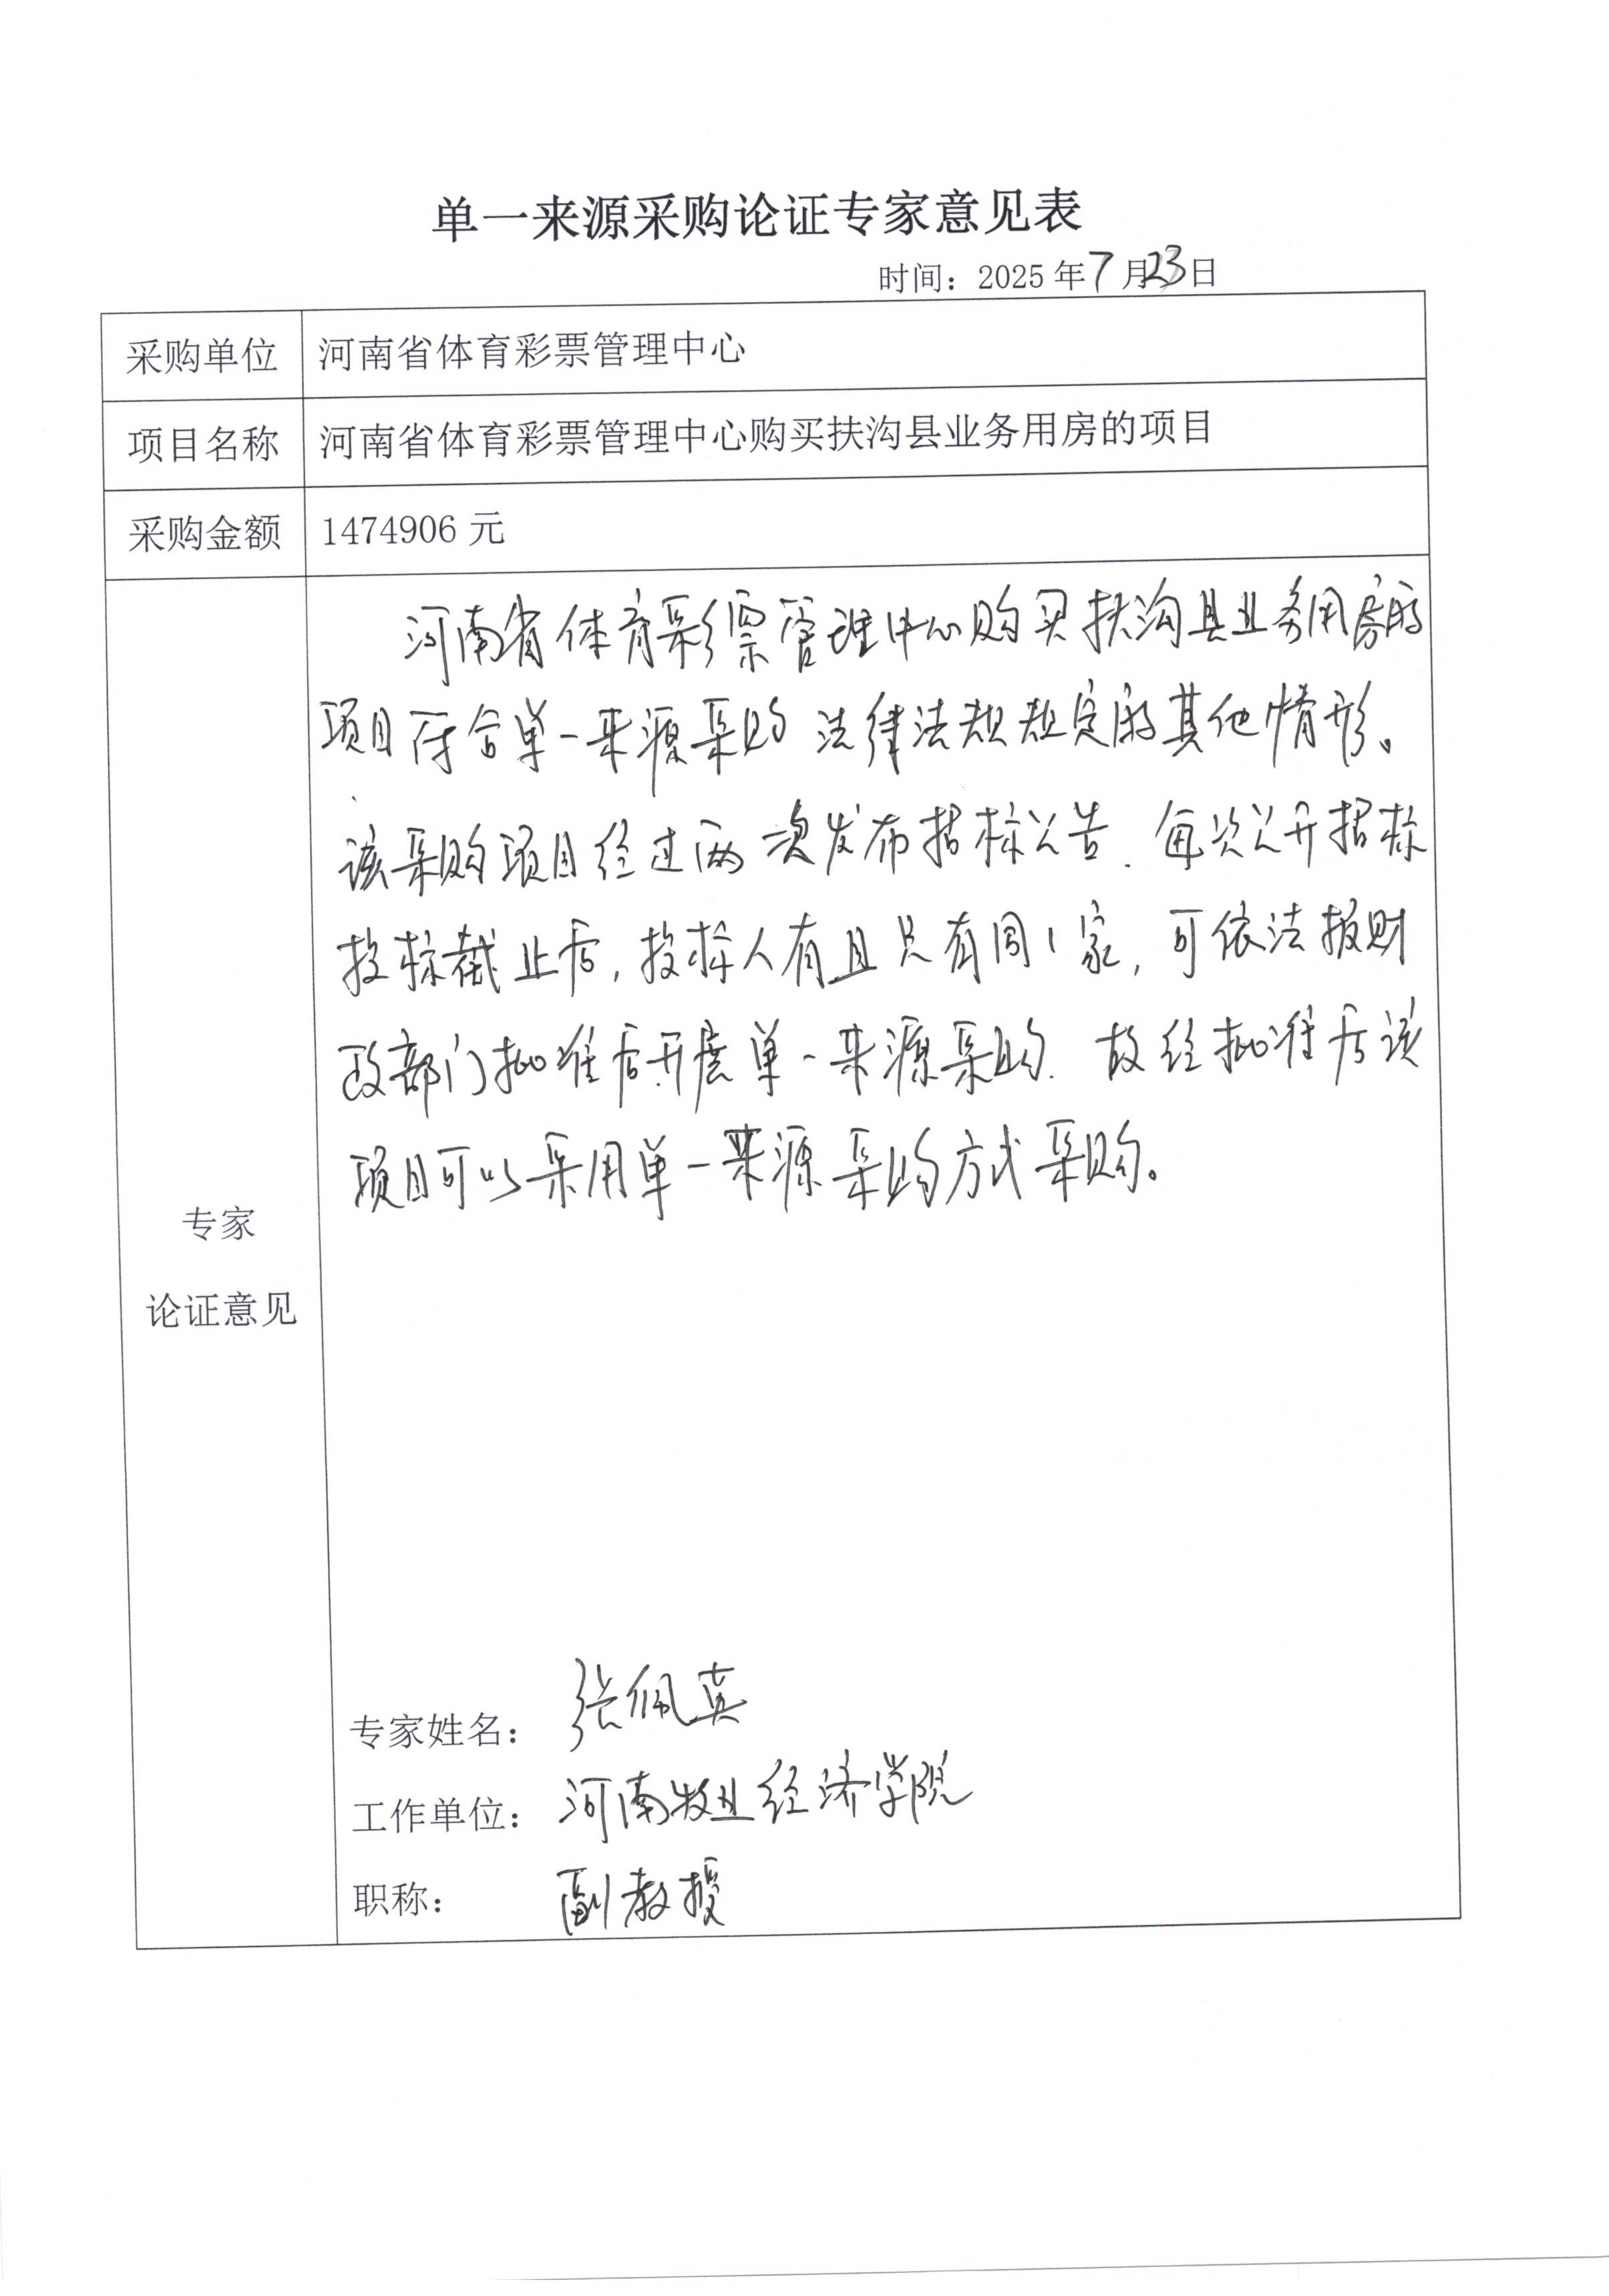 单一来源采购论证专家意见表
时间：2025年7月23日
采购单位 河南省体育彩票管理中心
项目名称 河南省体育彩票管理中心购买扶沟县业务用房的项目
采购金额 1474906元
河南省体育彩票管理中心购买扶沟县业务用房的
项目符合单一来源采购法律法规规定的其他情形。
该采购项目经过两次发布招标公告．每次公开招标
投标截止后，投标人有且只有同1家，可依法报财
政部门批准后开展单一来源采购．故经批准后该
项目可以采用单一来源采购方式采购。
专家
论证意见
专家姓名：张佩英
工作单位：河南牧业经济学院
职称：副教授